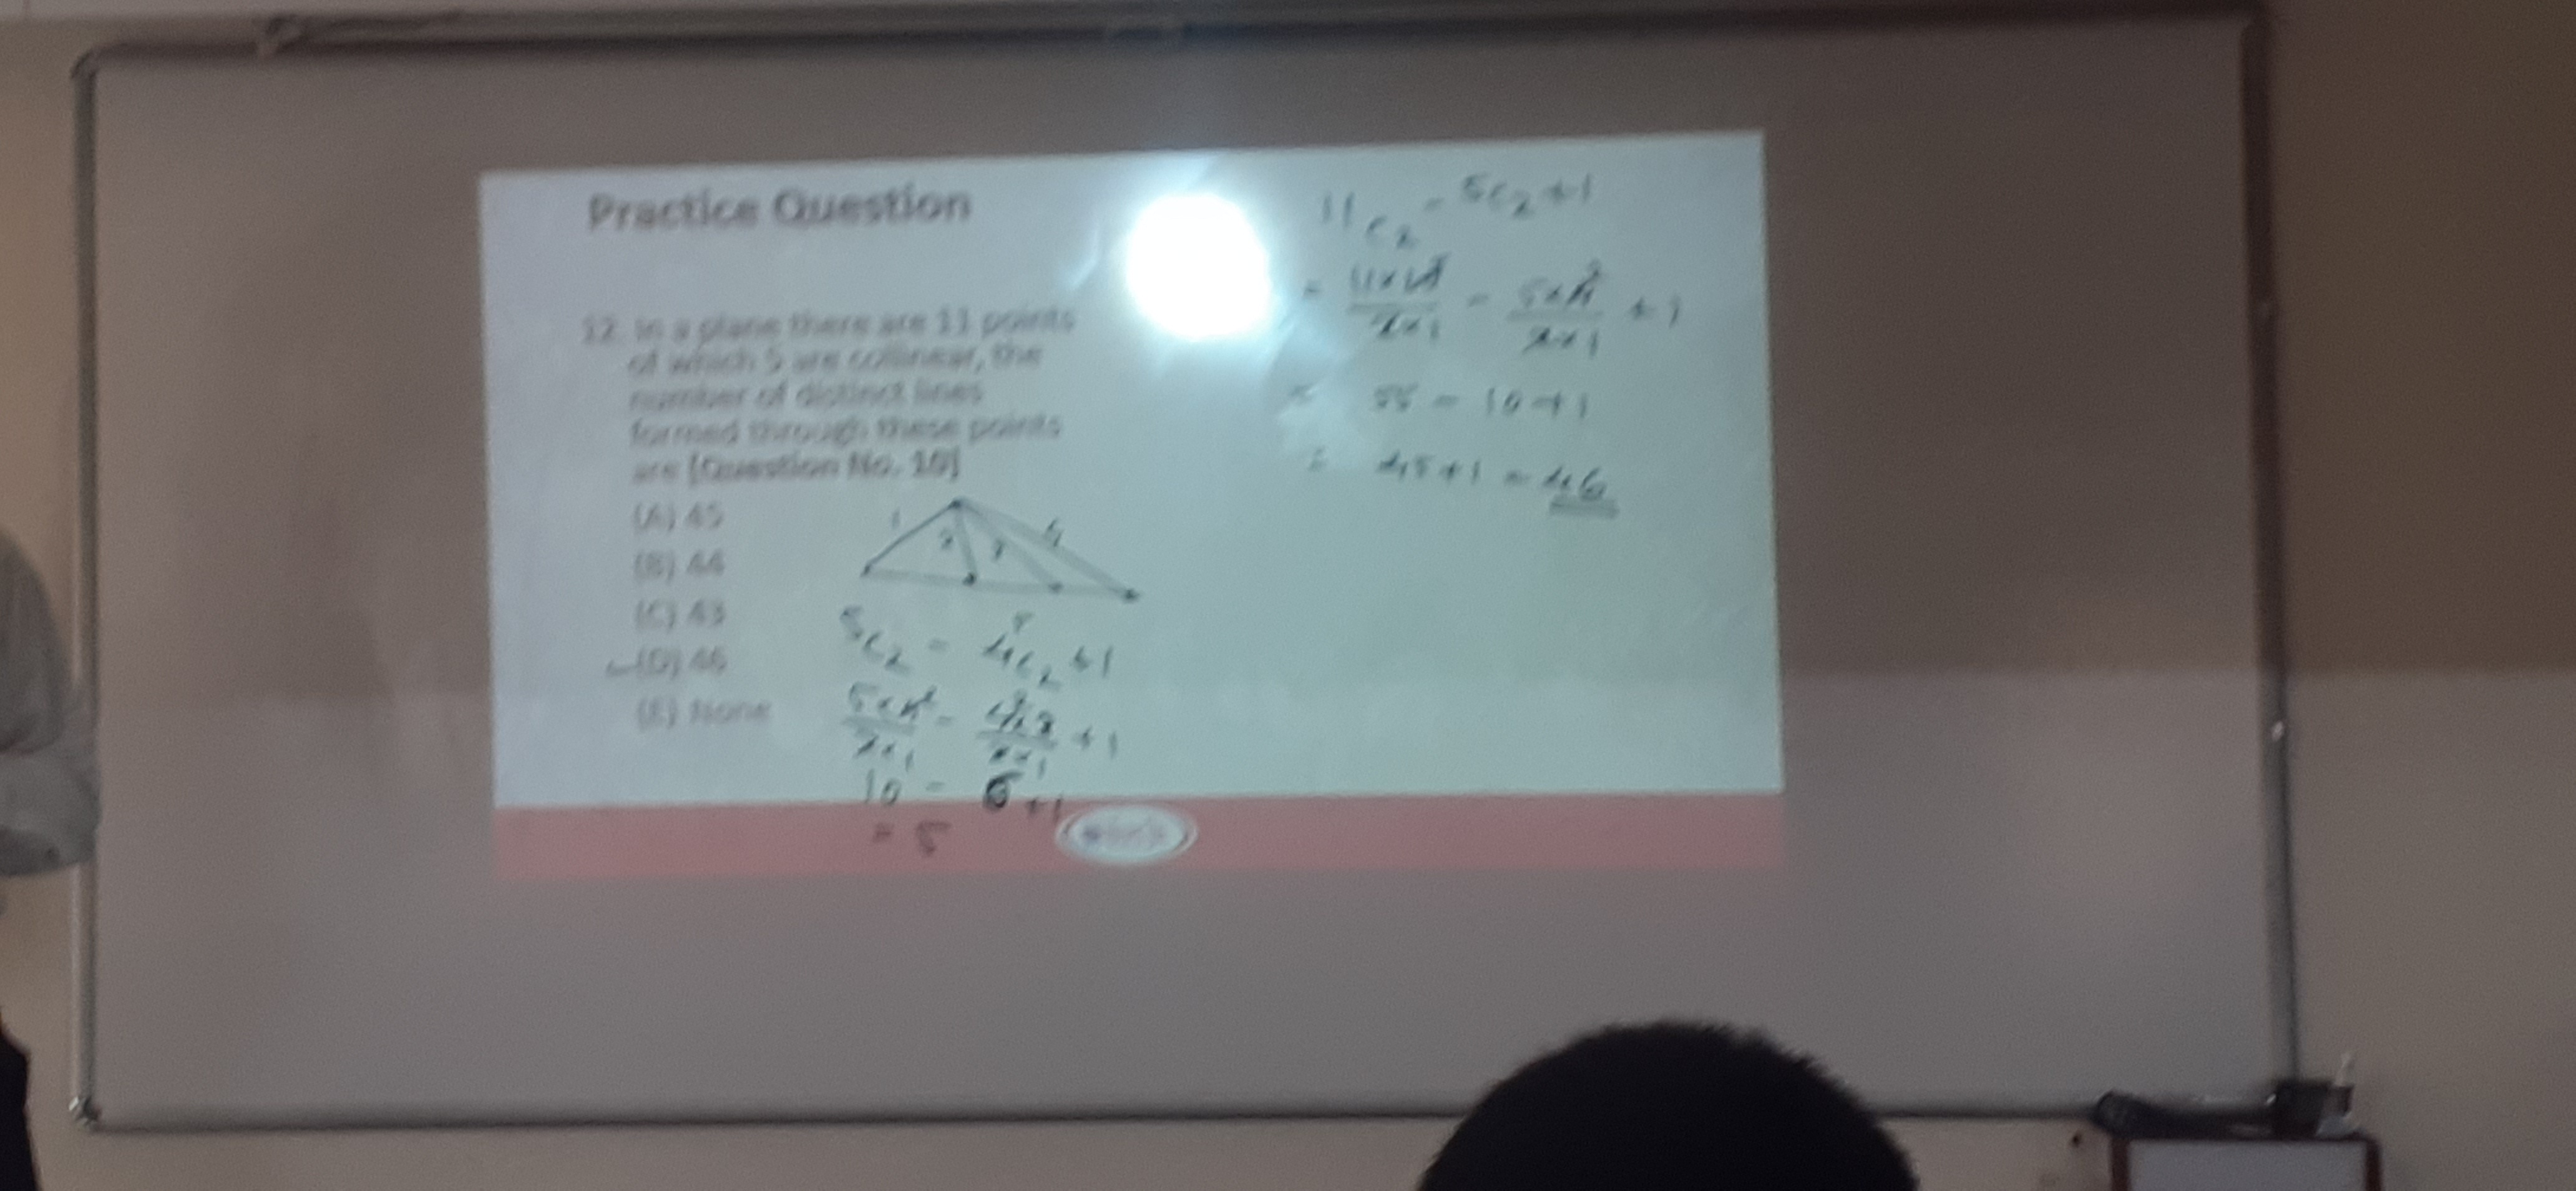 Practice Question
12. In a plane there are 11 points
of which 5 are collinear, the
number of distinct lines
formed through these points
are [Question No. 10]
(A) 45
(B) 44
(C) 43
(D) 46
(E) None
1 2 3 4
5
5c2 - 4c2 +1
5x4/2x1 - 4x3/2x1 +1
10 - 6 +1
= 5
11c2 - 5c2 +1
= 11x10/2x1 - 5x4/2x1 +1
= 55 - 10 +1
= 45+1 = 46